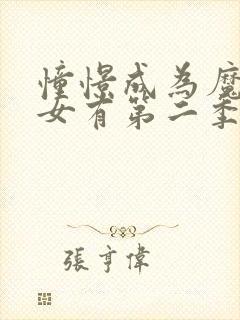 憧憬成為魔
女有第二季
張亨偉